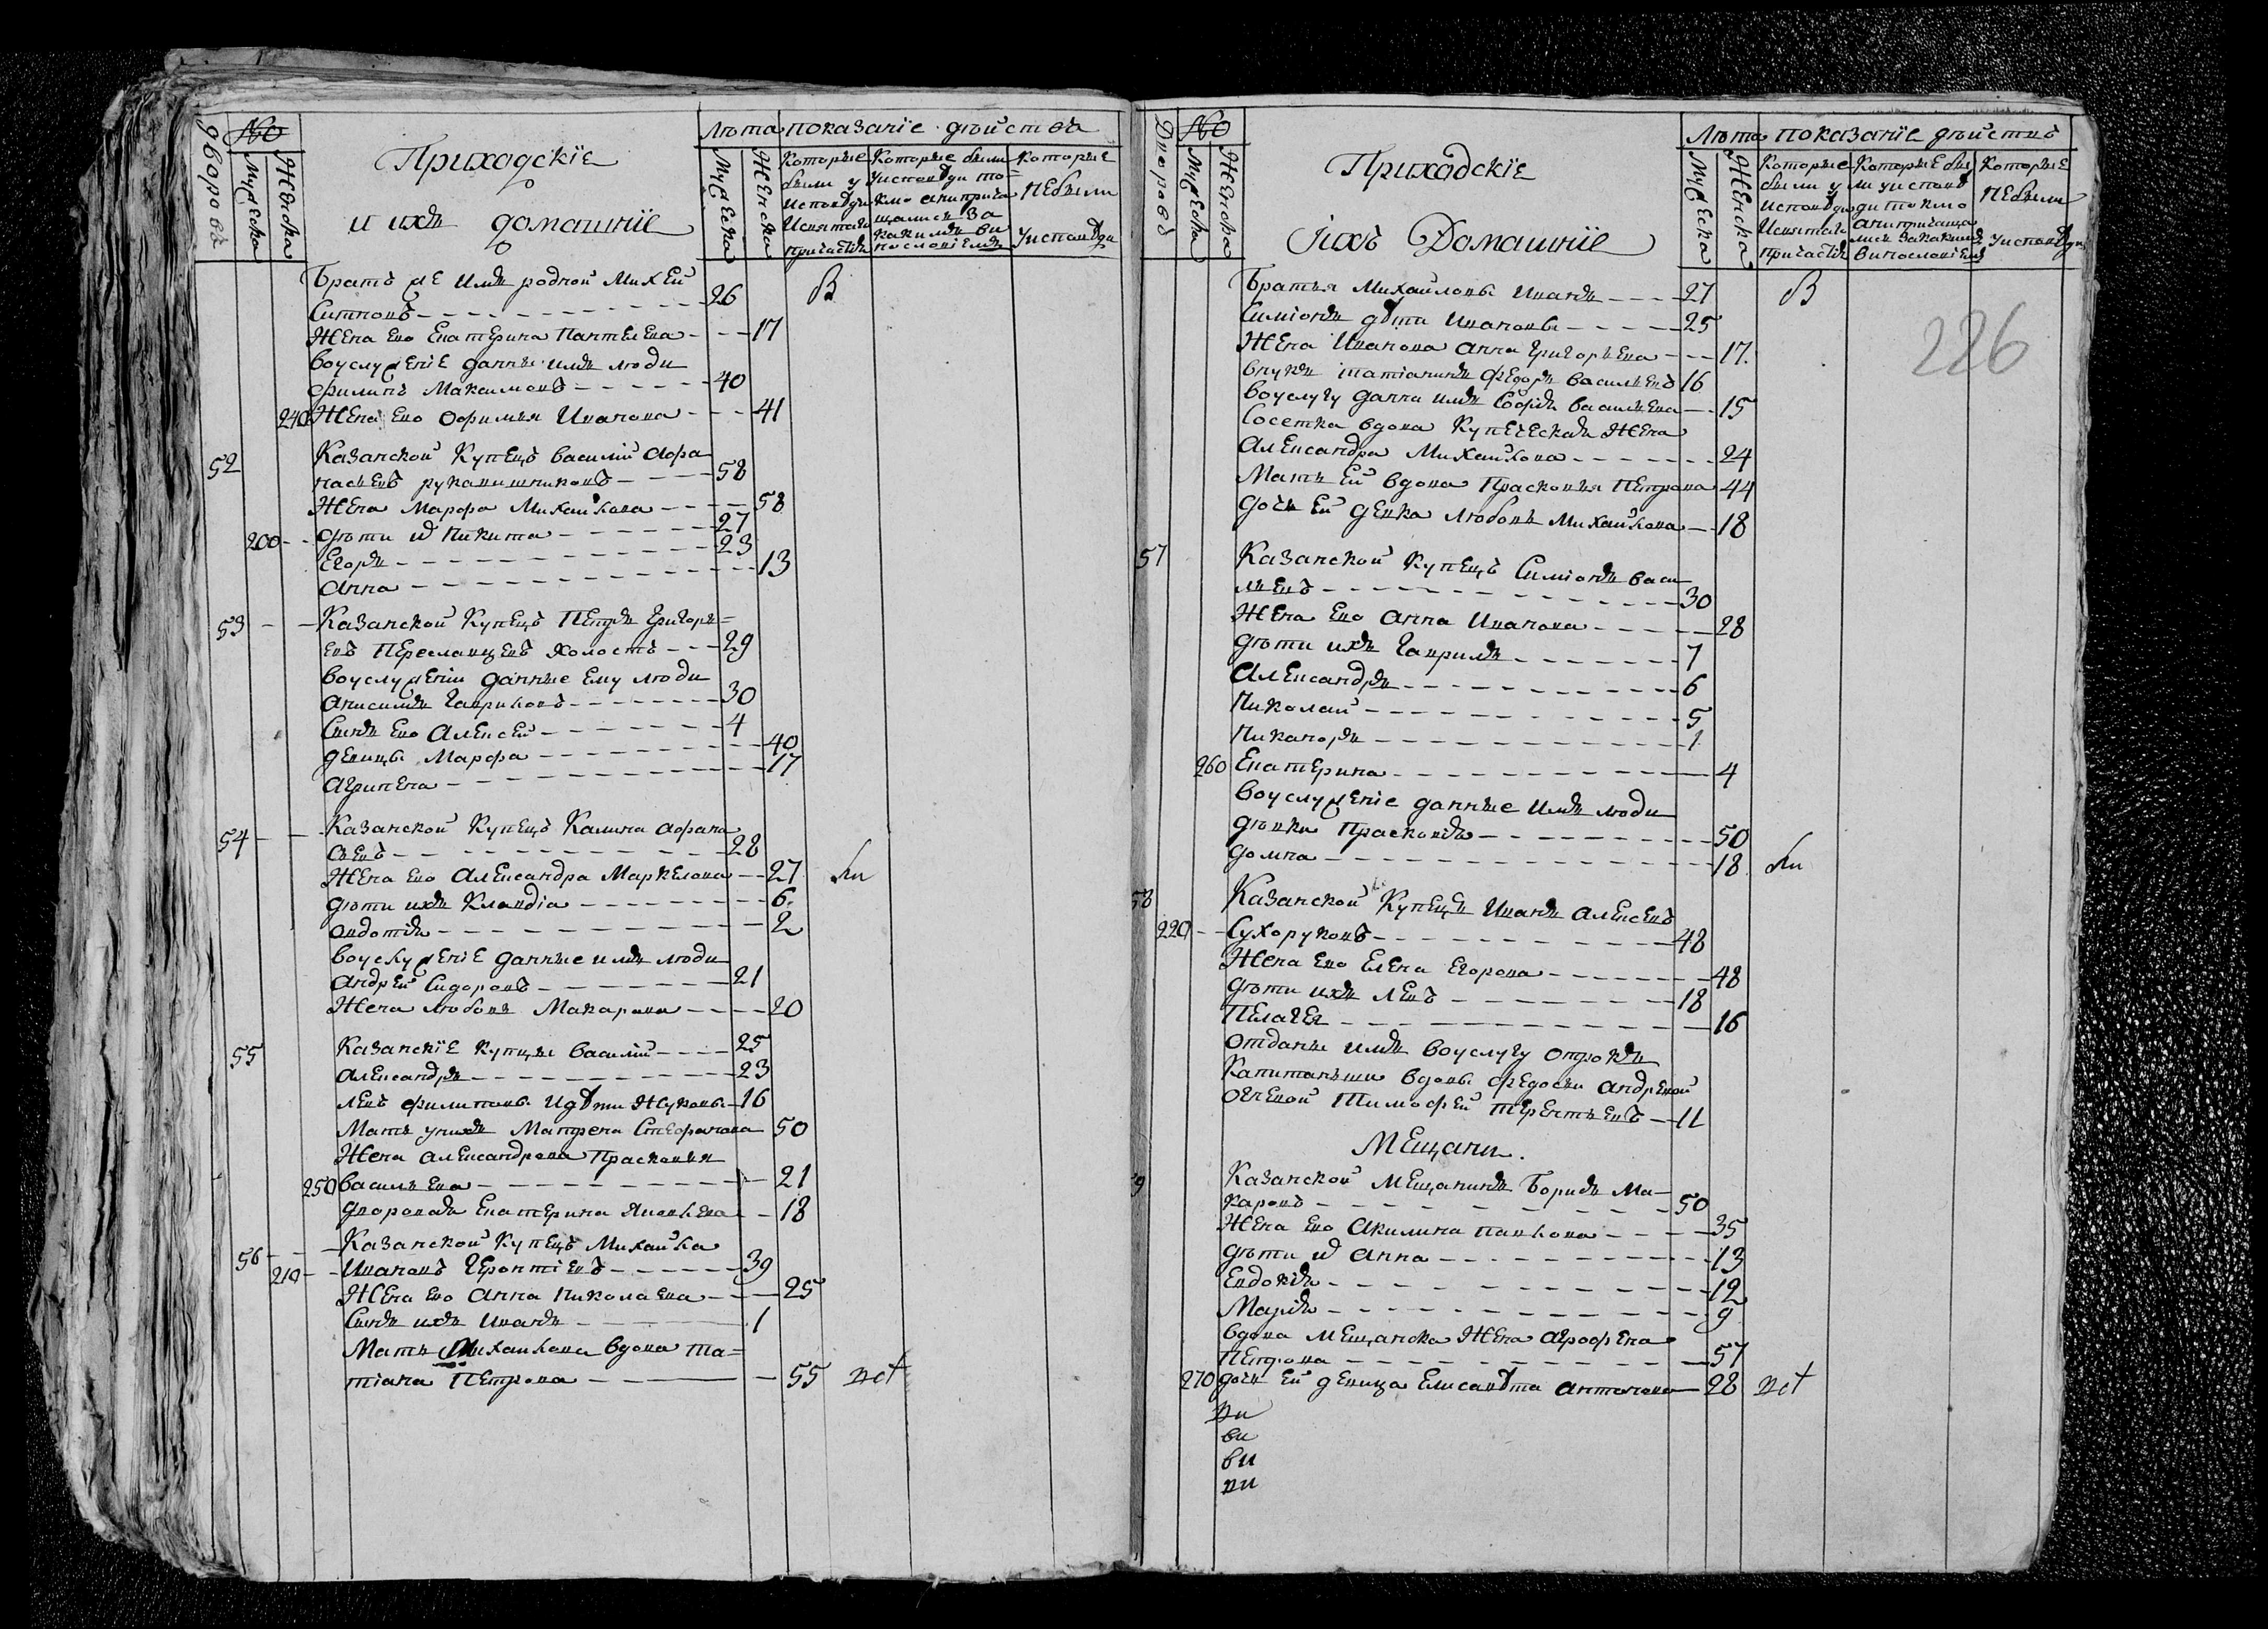 дворовъ
№
Мужеска
Женска
Приходскїе
и ихъ домашнїе
Лѣта показанїе дѣйствъ
Мужеска
Женска
Которые были у исповѣди и святаго причастїя
Которые были у исповѣди то=
кмо а не прича
щались за
какимъ ви
нословїемъ
Которые
небыли
у исповѣди
Братъ же имъ родной Михей
Ситновъ 26
В
Жена ево Екатерина Пантелева 17
воуслуженїе данные имъ люди
Филипъ Максимовъ 40
240 Жена ево Офимья Иванова 41
52 Казанской купецъ василїй Афа
насьевъ рукавишниковъ 58
Жена Марфа Михайлова 58
200 дѣти и҃ Никита 27
Егоръ 23
Анна 13
53 Казанской купецъ Петръ Григорь=
евъ Переславцевъ холостъ 29
воуслуженїи данные ему люди
Анисимъ Гавриловъ 30
Сынъ ево Алексей 4
девицы Марфа 40
Агрипена 17
54 Казанской Купецъ Калина Афана
сьевъ 28
Жена ево Александра Маркелова 27
ли
дѣти ихъ Клавдїа 6
овдотїя 2
воуслуженїе данные имъ люди
Андрей Сидоровъ 21
Жена любовь Макарова 20
55 Казанскїе купцы василїй 25
александръ 23
левъ филиповы идѣти Жуковы 16
Мать у нихъ Матрена Стефанова 50
Жена александрова Прасковья
250 васильева 21
дворовая Екатерина Яковлева 18
56 Казанской купецъ Михайла
210 Ивановъ Геронтїевъ 39
Жена ево Анна Николаева 25
Сынъ ихъ Иванъ 1
Мать Михайлова вдова та=
тїана Петрова 55
Дворовъ
№
Мужеска
Женска
Приходскїе
їихъ Домашнїе
Лѣта показанїе дѣйствъ
Мужеска
Женска
Которые были у исповѣди и святаго причастїя
Которые бы
ли у исповѣ
ди токмо
а не причаща
лись за какимъ
винословїемъ
Которые
небыли
у исповѣди
226
Братья Михайловы Иванъ 27
В
Симїонъ дѣти Ивановы 25
Жена Иванова Анна Григорьева 17
внукъ татїанинъ Федоръ васильевъ 16
воуслугу данна имъ Софїя васильева 15
Соседка вдова купеческая Жена
Александра Михайлова 24
Мать ей вдова Прасковья Петрова 44
дочь ей девка любовь Михайлова 18
57 Казанской купецъ Симїонъ васи
льевъ 30
Жена ево Анна Иванова 28
дѣти ихъ Гаврилъ 7
Александръ 6
Николай 5
Никаноръ 1
260 Екатерина 4
воуслуженїе данные имъ люди
дѣвки Прасковїя 50
домна 18
ли
58 Казанской Купецъ Иванъ Алексевъ
220 Сухоруковъ 48
Жена ево Елена Егорова 48
дѣти ихъ левъ 18
Пелагея 16
отданы имъ воуслугу
Капитаньши вдовы Федосьи Андревой
Тимофей терентьевъ 11
Мещани.
9 Казанской Мещанинъ Борисъ Ма
каровъ 50
Жена ево Акилина павлова 35
дѣти и҃ Анна 13
Евдокїя 12
Марїя 9
вдова Мещанска Жена Агрофена
Петрова 57
270 дочь ей девица Елисавѣта антонова 28
ви
ви